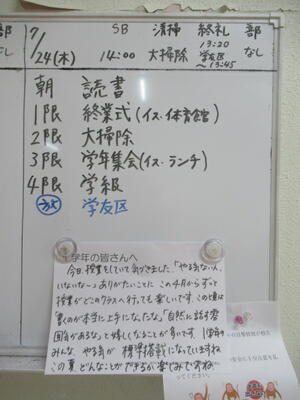 部 7/24(木) SB 清掃 終礼 部
なし 14:00 大掃除 13:20 学友区 〜13:45 なし
朝 読書
1限 終業式(イス・体育館)
2限 大掃除
3限 学年集会(イス・ランチ)
4限 学級
放 学友区
1学年の皆さんへ
今日、授業をしていて気ができました。「やる気ない人、
いないな〜」ありがたいことに、この4月からずっと
授業がどこのクラスへ行っても楽しいです。この頃は
「書くのが本当に上手になったなぁ」「自然に話す雰
囲気があるなぁ」と嬉しくなることが多いです。1学年の
みんな、やる気が標準搭載になっていますね
この夏どんなことができるか楽しみですね